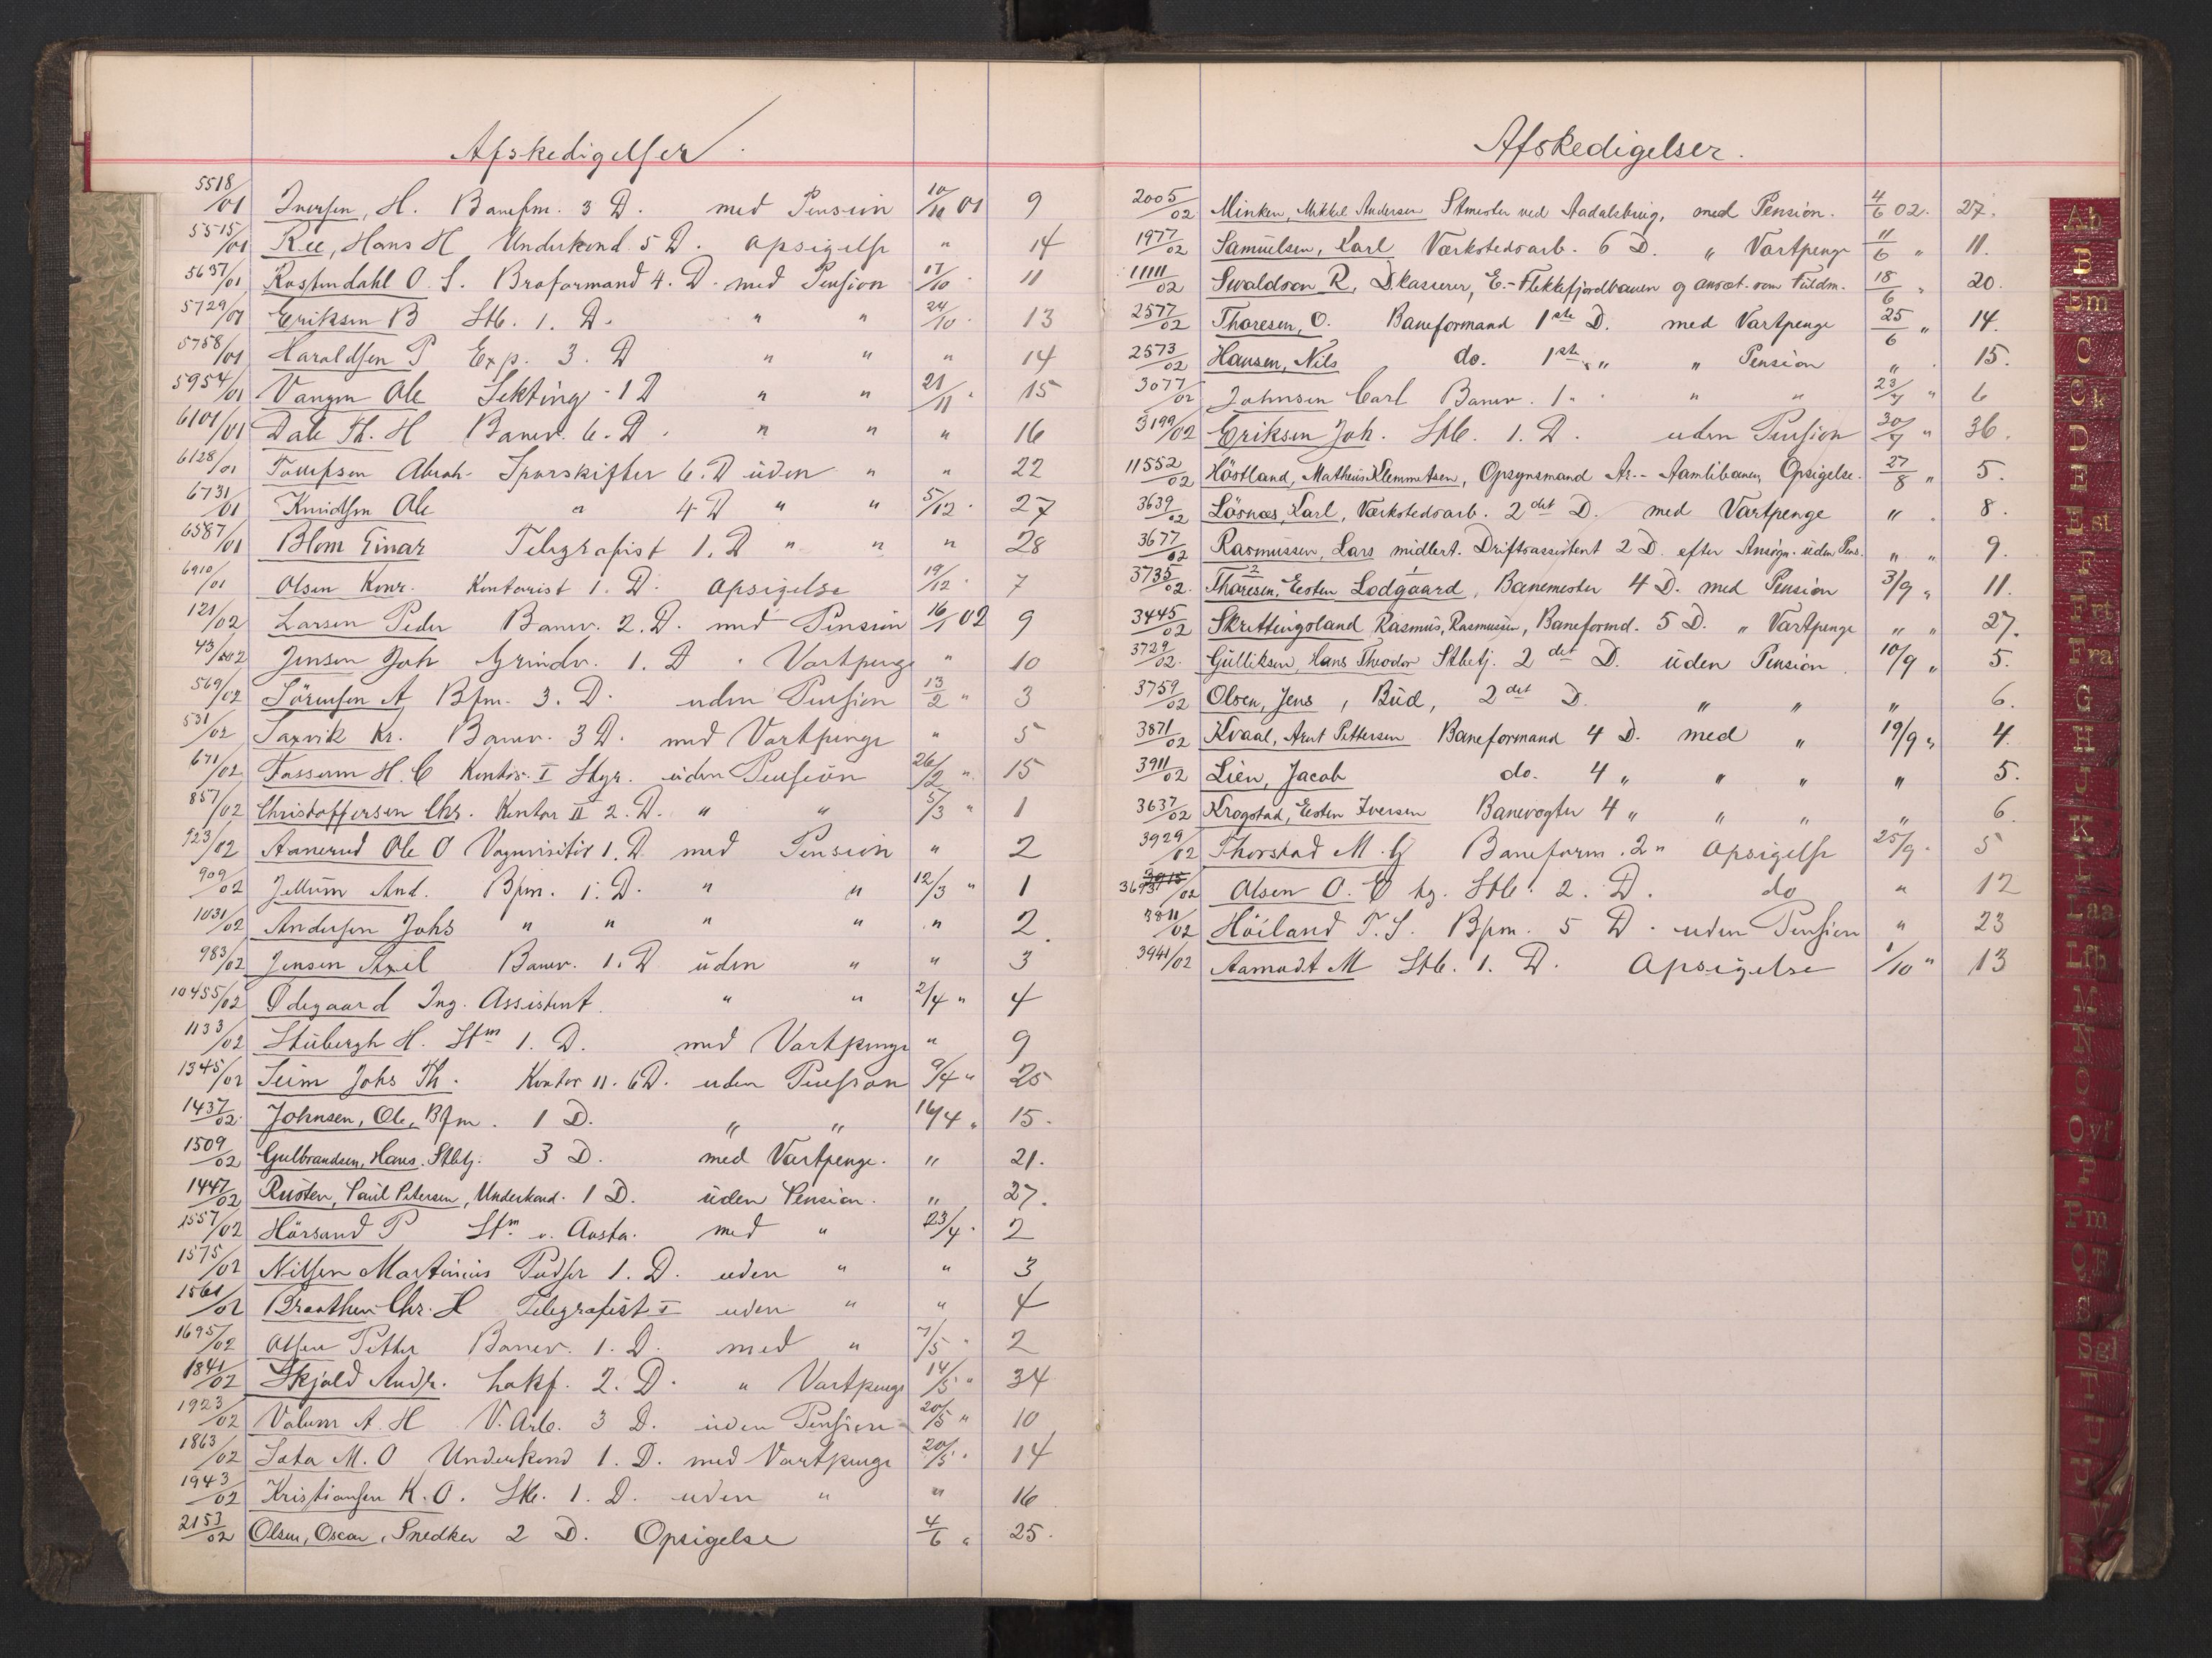 Afskedigelser.
5518/01 Iversen, H. Banefm. 3 D. med Pension 10/10 01 9
5515/01 Ree, Hans H Underkond 5 D. Opsigelse " 14
5637/01 Rustendahl O. S. Broformand 4. D. med Pension 17/10 11
5729/01 Eriksen B Stb. 1. D. " " 24/10 13
5758/01 Haraldsen P Exp. 3. D " " " 14
5954/01 Vangen Ole Sekting 1 D " " 21/11 15
6101/01 Dale Th. H Banev. 6. D. " " " 16
6128/01 Abrah. Sporskifter 6. D uden " " 22
6731/01 Knudsen Ole " 4 D " " 5/12 27
6587/01 Blom Einar Telegrafist 1. D " " " 28
6910/01 Olsen Konr. Kontorist 1. D. Opsigelse 19/12 7
121/02 Larsen Peder Banev. 2. D. med Pension 16/1 02 9
43/02 Jensen Joh Grindv. 1. D " Vartpenge " 10
569/02 Sörensen A Bfm. 3. D. uden Pension 13/2 " 3
531/02 Saxvik Kr. Banev. 3 D. med Vartpenge " 5
671/02 Fossum H. C Kontor. I Styr. uden Pension 26/2 " 15
857/02 Christoffersen Chr. Kontor II 2. D. " " 5/3 " 1
923/02 Aanerud Ole O Vognvisitör 1. D. med Pension " 2
909/02 Jellum And. Bfm. 1. D. " " 12/3 " 1
1031/02 Andersen Johs " " " " " 2.
983/02 Jensen Axel Banev. 1. D uden " " 3
10455/02 Ødegaard Ing. Assistent. " " 2/4 " 4
1133/02 Stubergh H. Stm 1. D. med Vartpenge " 9
1345/02 Seim Johs Th. Kontor II. 6 D. uden Pension 9/4 " 25
1437/02. Johnsen, Ole, Bfm. 1 D. " " 16/4 " 15.
1509/02 Gulbrandsen, Hans. Stbtj. 3 D. med Vartpenge. " 21.
1447/02 Rusten, Paul Petersen, Underkond. 1 D. uden Pension. " 27.
1557/02 Hörsand P Stm v. Austa. med " 23/4 2
1575/02 Nilsen Martinius Pudser 1. D. uden " " 3
1561/02 Braathen Chr. H Telegrafist I uden " " 4
1695/02 Olsen Petter Banev. 1. D. med " 7/5 " 2
1841/02 Skjold Andr. Lokf. 2. D. " Vartpenge 14/5 " 34
1923/02 Valum A. H V. Arb. 3 D. uden Pension 20/5 " 10
1863/02 Sata M. O Underkond 1. D. med Vartpenge 20/5 " 14
1943/02 Kristiansen K. O. Stb. 1. D. uden " " 16
2153/02 Olsen, Oscar, Snedker 2 D. Opsigelse 4/6 " 25.
Afskedigelser.
2005/02 Minken, Mikkel Andersen Stmester ved Aadalsbrug, med Pension. 4/6 02. 27.
1977/02 Samuelsen, Karl Værkstedsarb. 6 D. " Vartpenge 11/6 " 11.
11111/02 Svaldson R, D.kasserer, E.-Flekkefjordbanen og ansæt. som Fuldm. 18/6 " 20.
2577/02 Thoresen, O. Baneformand 1ste D. med Vartpenge 25/6 " 14.
2573/02 Hansen, Nils do. 1ste " " Pension " 15.
3077/02 Johnsen Carl Banev. 1 " " " 23/7 " 6
3199/02 Eriksen Joh. Stb. 1. D. uden Pension 30/7 " 36.
11552/02 Höstland, Matheus Klemmetsen, Opsynsmand Ar.-Aamlibanen, Opsigelse. 27/8 " 5.
3639/02 Lösnæs, Karl, Værkstedsarb. 2det D. med Vartpenge " 8.
3677/02 Rasmussen, Lars midlert. Driftsassistent 2 D. efter Ansögn. uden Pens. " " 9.
3735/02. Tharesen, Eesten Lodgaard, Banemester 4 D. med Pension 3/9 " 11.
3445/02 Skrettingsland Rasmus, Rasmussen, Baneformd. 5 D. " Vartpenge " " 27.
3729/02. Gulliksen, Hans Theodor Stbetj. 2det D. uden Pension 10/9 " 5.
3759/02 Olsen, Jens, Bud, 2det D. " " " 6.
3871/02 Kvaal, Arnt Pettersen Baneformand 4 D. med " 19/9 " 4.
3911/02 Lien, Jacob do. 4 " " " " 5.
3637/02 Krogstad, Eesten Iversen Banevogter 4 " " " " 6.
3929/02 Thorstad M. G Baneform. 2 " Opsigelse 25/9 5
3693/02 Olsen O. C tg. Stb. 2. D. do " 12
3811/02 Höiland T. S. Bfm. 5 D. uden Pension " 23
3941/02 Aamodt M Stb. 1. D. Opsigelse 1/10 " 13
Ab
B
Bm
C
Ck
D
E
Est
F
Frt
Fra
G
H
J
K
L
Laa
Lfb
M
N
O
Ovf
P
Pm
S
Sgl
T
U
V